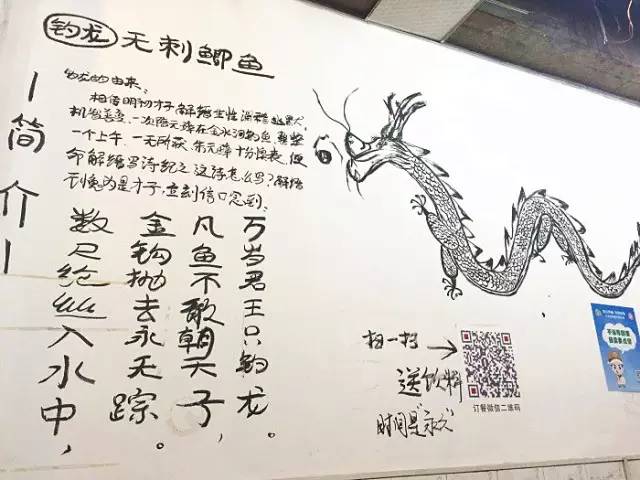 钓龙 无刺鲫鱼
简介
钓龙的由来:
相传明初才子解缙生性滑稽幽默
机智善变,一次陪元璋在金水河钓鱼,整整
一个上午,一无所获,朱元璋十分懊丧,便
命解缙写诗纪之,这诗怎么写?解缙
是才子,立刻信口念到:
数尺纶丝入水中,
金钩抛去永无踪。
凡鱼不敢朝天子,
万岁君王只钓龙。
扫一扫
送饮料
时间是"永久"
订餐微信二维码